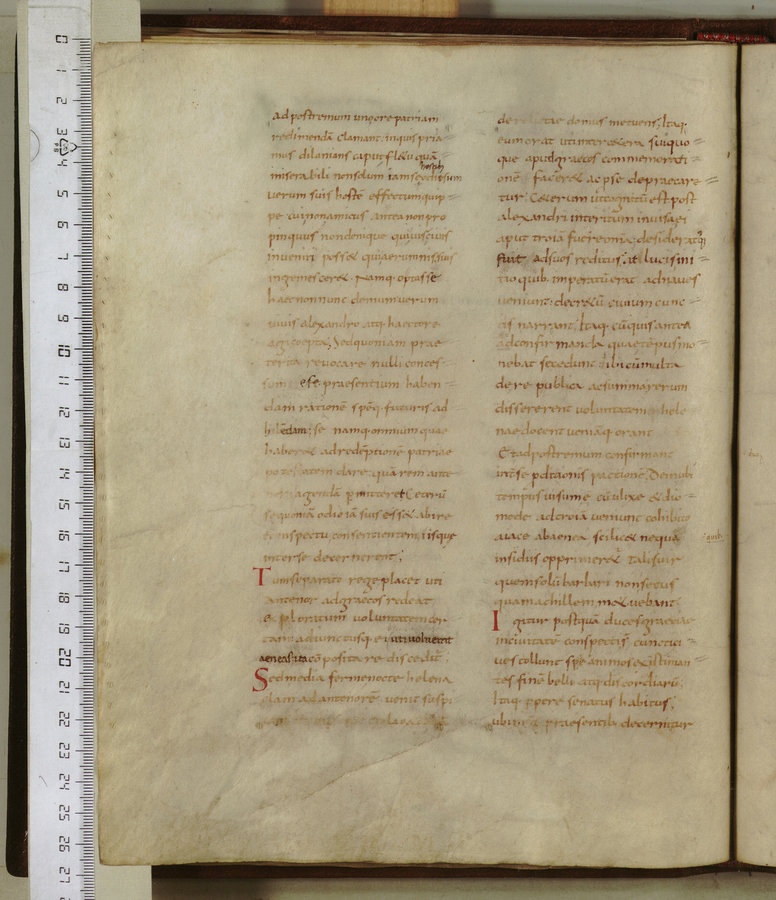 ad postremum ungere patriam
redimendã clamant; inquis pria
mus dilanians caput fl&u quã
miserabili non solum iam se odio sum
hosp̃
uerum suis hostẽ effectum quip
pe cui non amicus antea non pro
pinquus non denique
inueniri poss& quia erumnis suis
ingemescer& Namq; optasse
haec non nunc demum uerum
uiuis alexandro atq; haectore
agi coepta; Sed quoniam prae
terita reuocare nulli conces
sum esse praesentium haben
dam rationẽ speq; futuris ad
se namq; omnium quae
haber& ad redẽptionẽ patriae
potestatem dare quã rem ante
agendã p̃mitter& Ceterũ
se quoniã odio iã suis ess& abire
e conspectu consentientem iis que
inter se decernerent;
Tum separato rege placet uti
antenor ad graecos redeat
exploratum uoluntatem cer
tam adiunctusq; ei uti uoluerat
aeneas ita cõposita re disceditᷣ
Sed media ferme nocte helena
clam ad antenorẽ uenit suspi
derelictae domus metuens; Itaq;
eum orat uti inter c&era sui quo
que aput graecos commemorati
onẽ facer& ac p se depraecare
tur; Ceterum ut cognitũ est post
alexandri interitum inuisa ei
aput troiã fuere omia desideratq;
fuit ad suos reditus; at lucis ini
tio quib; imperatũ erat ad naues
ueniunt; decr&ũ ciuium cunc
tis narrant; Itaq; cũ quis antea
ad confirmanda quae tẽpus mo
nebat secedunt; ibi cũ multa
de re publica ac summa rerum
dissererent uoluntatem hele
nae docent ueniãq; orant
Et ad postremum confirmant
int̃ se pditionis pactionẽ; Dein ubi
tempus uisum ẽ cũ ulixe & dio
mede ad troiã ueniunt cohibito
aiace ab aenea scilic& nequã
insidiis opprimer&ᷣ talis uir
quem solũ barbari non secus
quam achillem m&uebant;
Igitur postquã duces graeciae
in ciuitate conspecti s̃ cuncti ci
ues tollunt spe animos existiman
tes finẽ belli atq; discordiarũ;
Itaq; ppere senatus habitus;
ubi nr̃is praesentib; decernitur